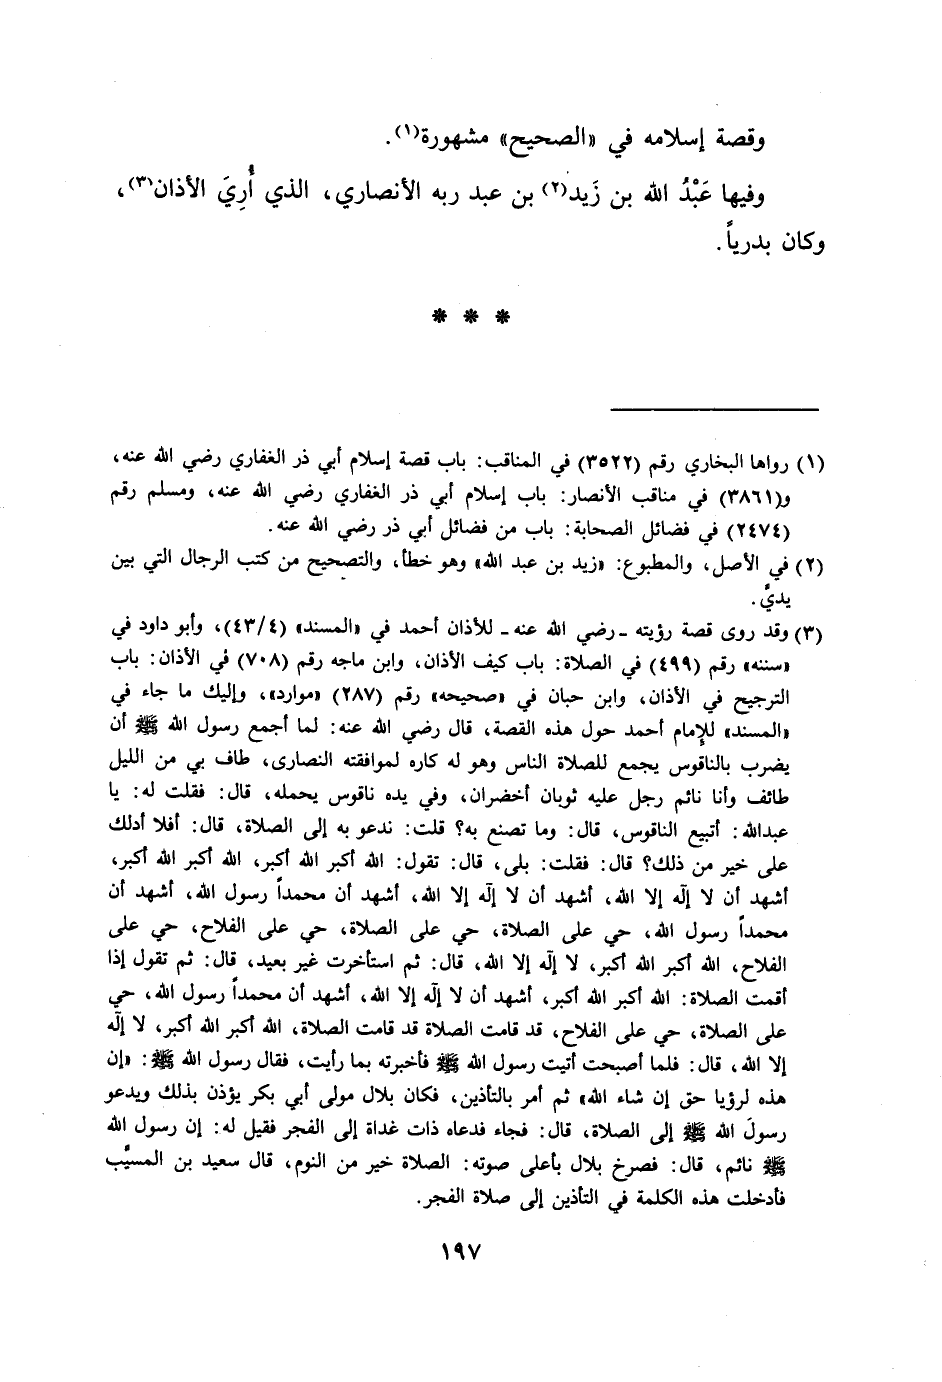 وقصة إسلامه في «الصحيح» مشهورة(١).
وفيها عَبْدُ الله بن زَيد(٢) بن عبد ربه الأنصاري، الذي أُرِيَ الأذان(٣)،
وكان بدرياً.
* * *
(١) رواها البخاري رقم (٣٥٢٢) في المناقب: باب قصة إسلام أبي ذر الغفاري رضي الله عنه،
و(٣٨٦١) في مناقب الأنصار: باب إسلام أبي ذر الغفاري رضي الله عنه، ومسلم رقم
(٢٤٧٤) في فضائل الصحابة: باب من فضائل أبي ذر رضي الله عنه.
(٢) في الأصل، والمطبوع: «زيد بن عبد الله» وهو خطأ، والتصحيح من كتب الرجال التي بين
يديَّ.
(٣) وقد روى قصة رؤيته ـ رضي الله عنه ـ للأذان أحمد في «المسند» (٤٣/٤)، وأبو داود في
«سننه» رقم (٤٩٩) في الصلاة: باب كيف الأذان، وابن ماجه رقم (٧٠٨) في الأذان: باب
الترجيح في الأذان، وابن حبان في «صحيحه» رقم (٢٨٧) «موارد»، وإليك ما جاء في
«المسند» للإمام أحمد حول هذه القصة، قال رضي الله عنه: لما أجمع رسول الله ﷺ أن
يضرب بالناقوس يجمع للصلاة الناس وهو له كاره لموافقته النصارى، طاف بي من الليل
طائف وأنا نائم رجل عليه ثوبان أخضران، وفي يده ناقوس يحمله، قال: فقلت له: يا
عبدالله: أتبيع الناقوس، قال: وما تصنع به؟ قلت: ندعو به إلى الصلاة، قال: أفلا أدلك
على خير من ذلك؟ قال: فقلت: بلى، قال: تقول: الله أكبر الله أكبر، الله أكبر الله أكبر،
أشهد أن لا إلٰه إلا الله، أشهد أن لا إلٰه إلا الله، أشهد أن محمداً رسول الله، أشهد أن
محمداً رسول الله، حي على الصلاة، حي على الصلاة، حي على الفلاح، حي على
الفلاح، الله أكبر الله أكبر، لا إلٰه إلا الله، قال: ثم استأخرت غير بعيد، قال: ثم تقول إذا
أقمت الصلاة: الله أكبر الله أكبر، أشهد أن لا إلٰه إلا الله، أشهد أن محمداً رسول الله، حي
على الصلاة، حي على الفلاح، قد قامت الصلاة قد قامت الصلاة، الله أكبر الله أكبر، لا إلٰه
إلا الله، قال: فلما أصبحت أتيت رسول الله ﷺ فأخبرته بما رأيت، فقال رسول الله ﷺ: «إن
هذه لرؤيا حق إن شاء الله» ثم أمر بالتأذين، فكان بلال مولى أبي بكر يؤذن بذلك ويدعو
رسولَ الله ﷺ إلى الصلاة، قال: فجاء فدعاه ذات غداة إلى الفجر فقيل له: إن رسول الله
ﷺ نائم، قال: فصرخ بلال بأعلى صوته: الصلاة خير من النوم، قال سعيد بن المسيَّب
فأدخلت هذه الكلمة في التأذين إلى صلاة الفجر.
١٩٧